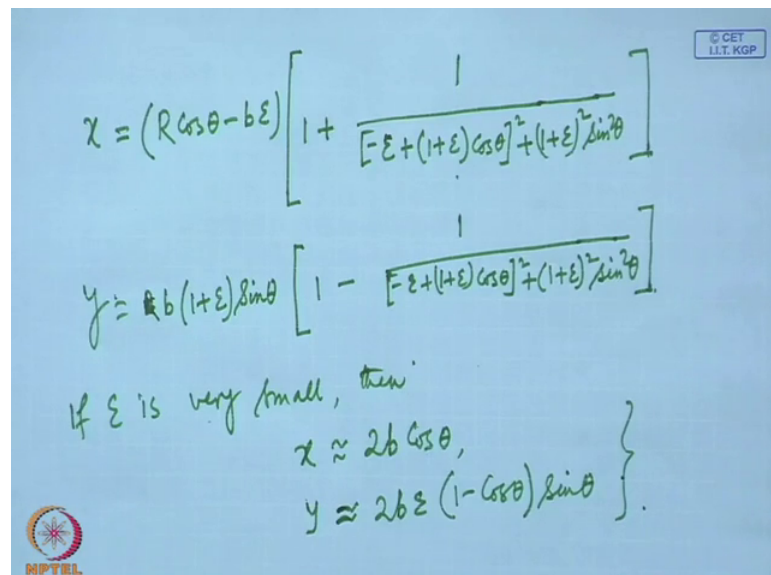 © CET
I.I.T. KGP
x = (R Cosθ - bε) [1 + 1 / ([-ε + (1+ε) cosθ]² + (1+ε)² sin²θ)]
y = b (1+ε) sinθ [1 - 1 / ([-ε + (1+ε) cosθ]² + (1+ε)² sin²θ)]
If ε is very small, then
x ≈ 2b Cosθ,
y ≈ 2bε (1 - Cosθ) sinθ } .
NPTEL